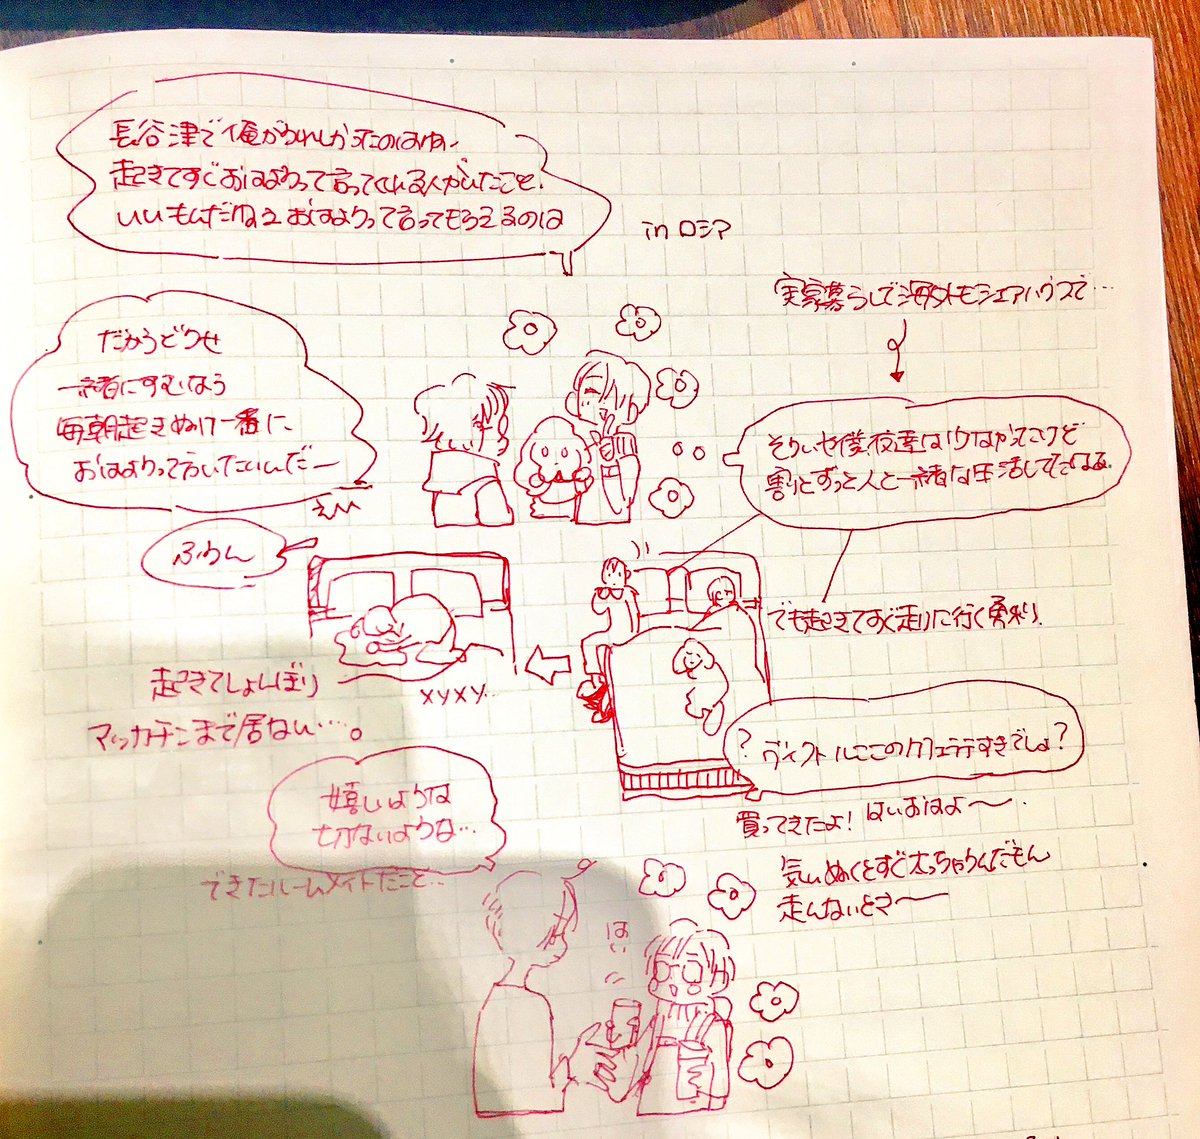 長谷津で俺がうれしかったのはね、
起きてすぐおはようって言ってくれる人がいたこと。
いいもんだねェおはようって言ってもらえるのは
in ロシア
だからどうせ
一緒にすむなら
毎朝起きぬけ一番に、
おはようって言いたいんだー
えへ
ふうん
実家暮らしで海外もシェアハウスで…
そういや僕、夜達は
割とずっと人と一緒な生活してたなぁ
でも起きてすぐ走りに行く勇利
起きてしょんぼり
マッカチンまで居ない…。
xyxy…
?ヴィクトルここのカフェラテすきでしょ?
買ってきたよ!はいおはよ〜
気ぃぬくとすぐ太っちゃうんだもん
走んないとさ〜
嬉しいような
切ないような…
できたルームメイトだこと…
はい